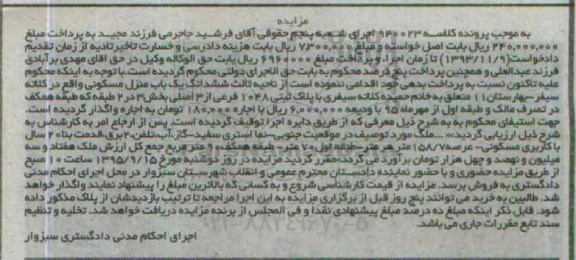 مزایده
به موجب پرونده کلاسه ۹۴۰۰۲۳ اجرای شعبه پنجم حقوقی آقای فرشید جاجرمی فرزند مجید به پرداخت مبلغ
۲۴۰,۰۰۰,۰۰۰ ریال بابت اصل خواسته و مبلغ ۷۳۰۰,۰۰۰ ریال بابت هزینه دادرسی و خسارت تاخیرتادیه از زمان تقدیم
دادخواست(۱۳۹۳/۱۱/۹) تا زمان اجرا، و پرداخت مبلغ ۶۹۶۰۰۰۰ ریال بابت حق الوکاله وکیل در حق آقای مهدی برآبادی
فرزند عبدالعلی و همچنین پرداخت پنج درصد محکوم به بابت حق الاجرای دولتی محکوم گردیده است.با توجه به اینکه محکوم
علیه تاکنون نسبت به پرداخت بدهی خود اقدامی ننموده است از ناحیه ثالث ششدانگ یک باب منزل مسکونی واقع در کلاته
سیفر-بهارستان۱۱ متعلق به خانم حمیده کلاته سیفری با پلاک ثبتی ۱۰۴۸ فرعی از ۳ اصلی بخش۳ در۲ طبقه که طبقه همکف
در تصرف مالک و طبقه اول از مهرماه ۹۵ با ودیعه ۶۰,۰۰۰,۰۰۰ ریال با اجاره ۱,۸۰۰,۰۰۰ تومان به اجاره واگذار گردیده است.
جهت استیفای محکوم به به شرح ذیل معرفی که از طریق دایره اجرا توقیف گردیده است. پس از ارجاع امر به کارشناس به
شرح ذیل ارزیابی گردید: «...ملک مورد توصیف در موقعیت جنوبی-نما آستری سفید-گاز،آب،تلفن،۲برق-قدمت بنا ۲۰ سال
با کاربری مسکونی- عرصه۱۵۸/۷ متر مربع-طبقه اول ۷۰ متر- طبقه همکف ۹۰ متر مربع جمع کل ارزش ملک هفتاد و سه
میلیون و نهصد و چهل هزار تومان برآورد می گردد»مقرر گردید مزایده در روز دوشنبه مورخ ۱۳۹۵/۹/۱۵ ساعت ۱۰ صبح
از طریق مزایده حضوری و با حضور نماینده دادستان محترم عمومی و انقلاب شهرستان سبزوار در محل اجرای احکام مدنی
دادگستری به فروش برسد. مزایده از قیمت کارشناسی شروع و به کسانی که بالاترین مبلغ را پیشنهاد نمایند واگذار خواهد
شد. طالبین به خرید می توانند پنج روز قبل از برگزاری مزایده به این اجرا مراجعه تا ترتیب بازدیدشان از پلاک مذکور داده
شود. قابل ذکر اینکه مبلغ ده درصد مبلغ پیشنهادی نقدا و فی المجلس از برنده مزایده دریافت خواهد شد. تخلیه و تنظیم
سند تابع مقررات جاری می باشد.
اجرای احکام مدنی دادگستری سبزوار